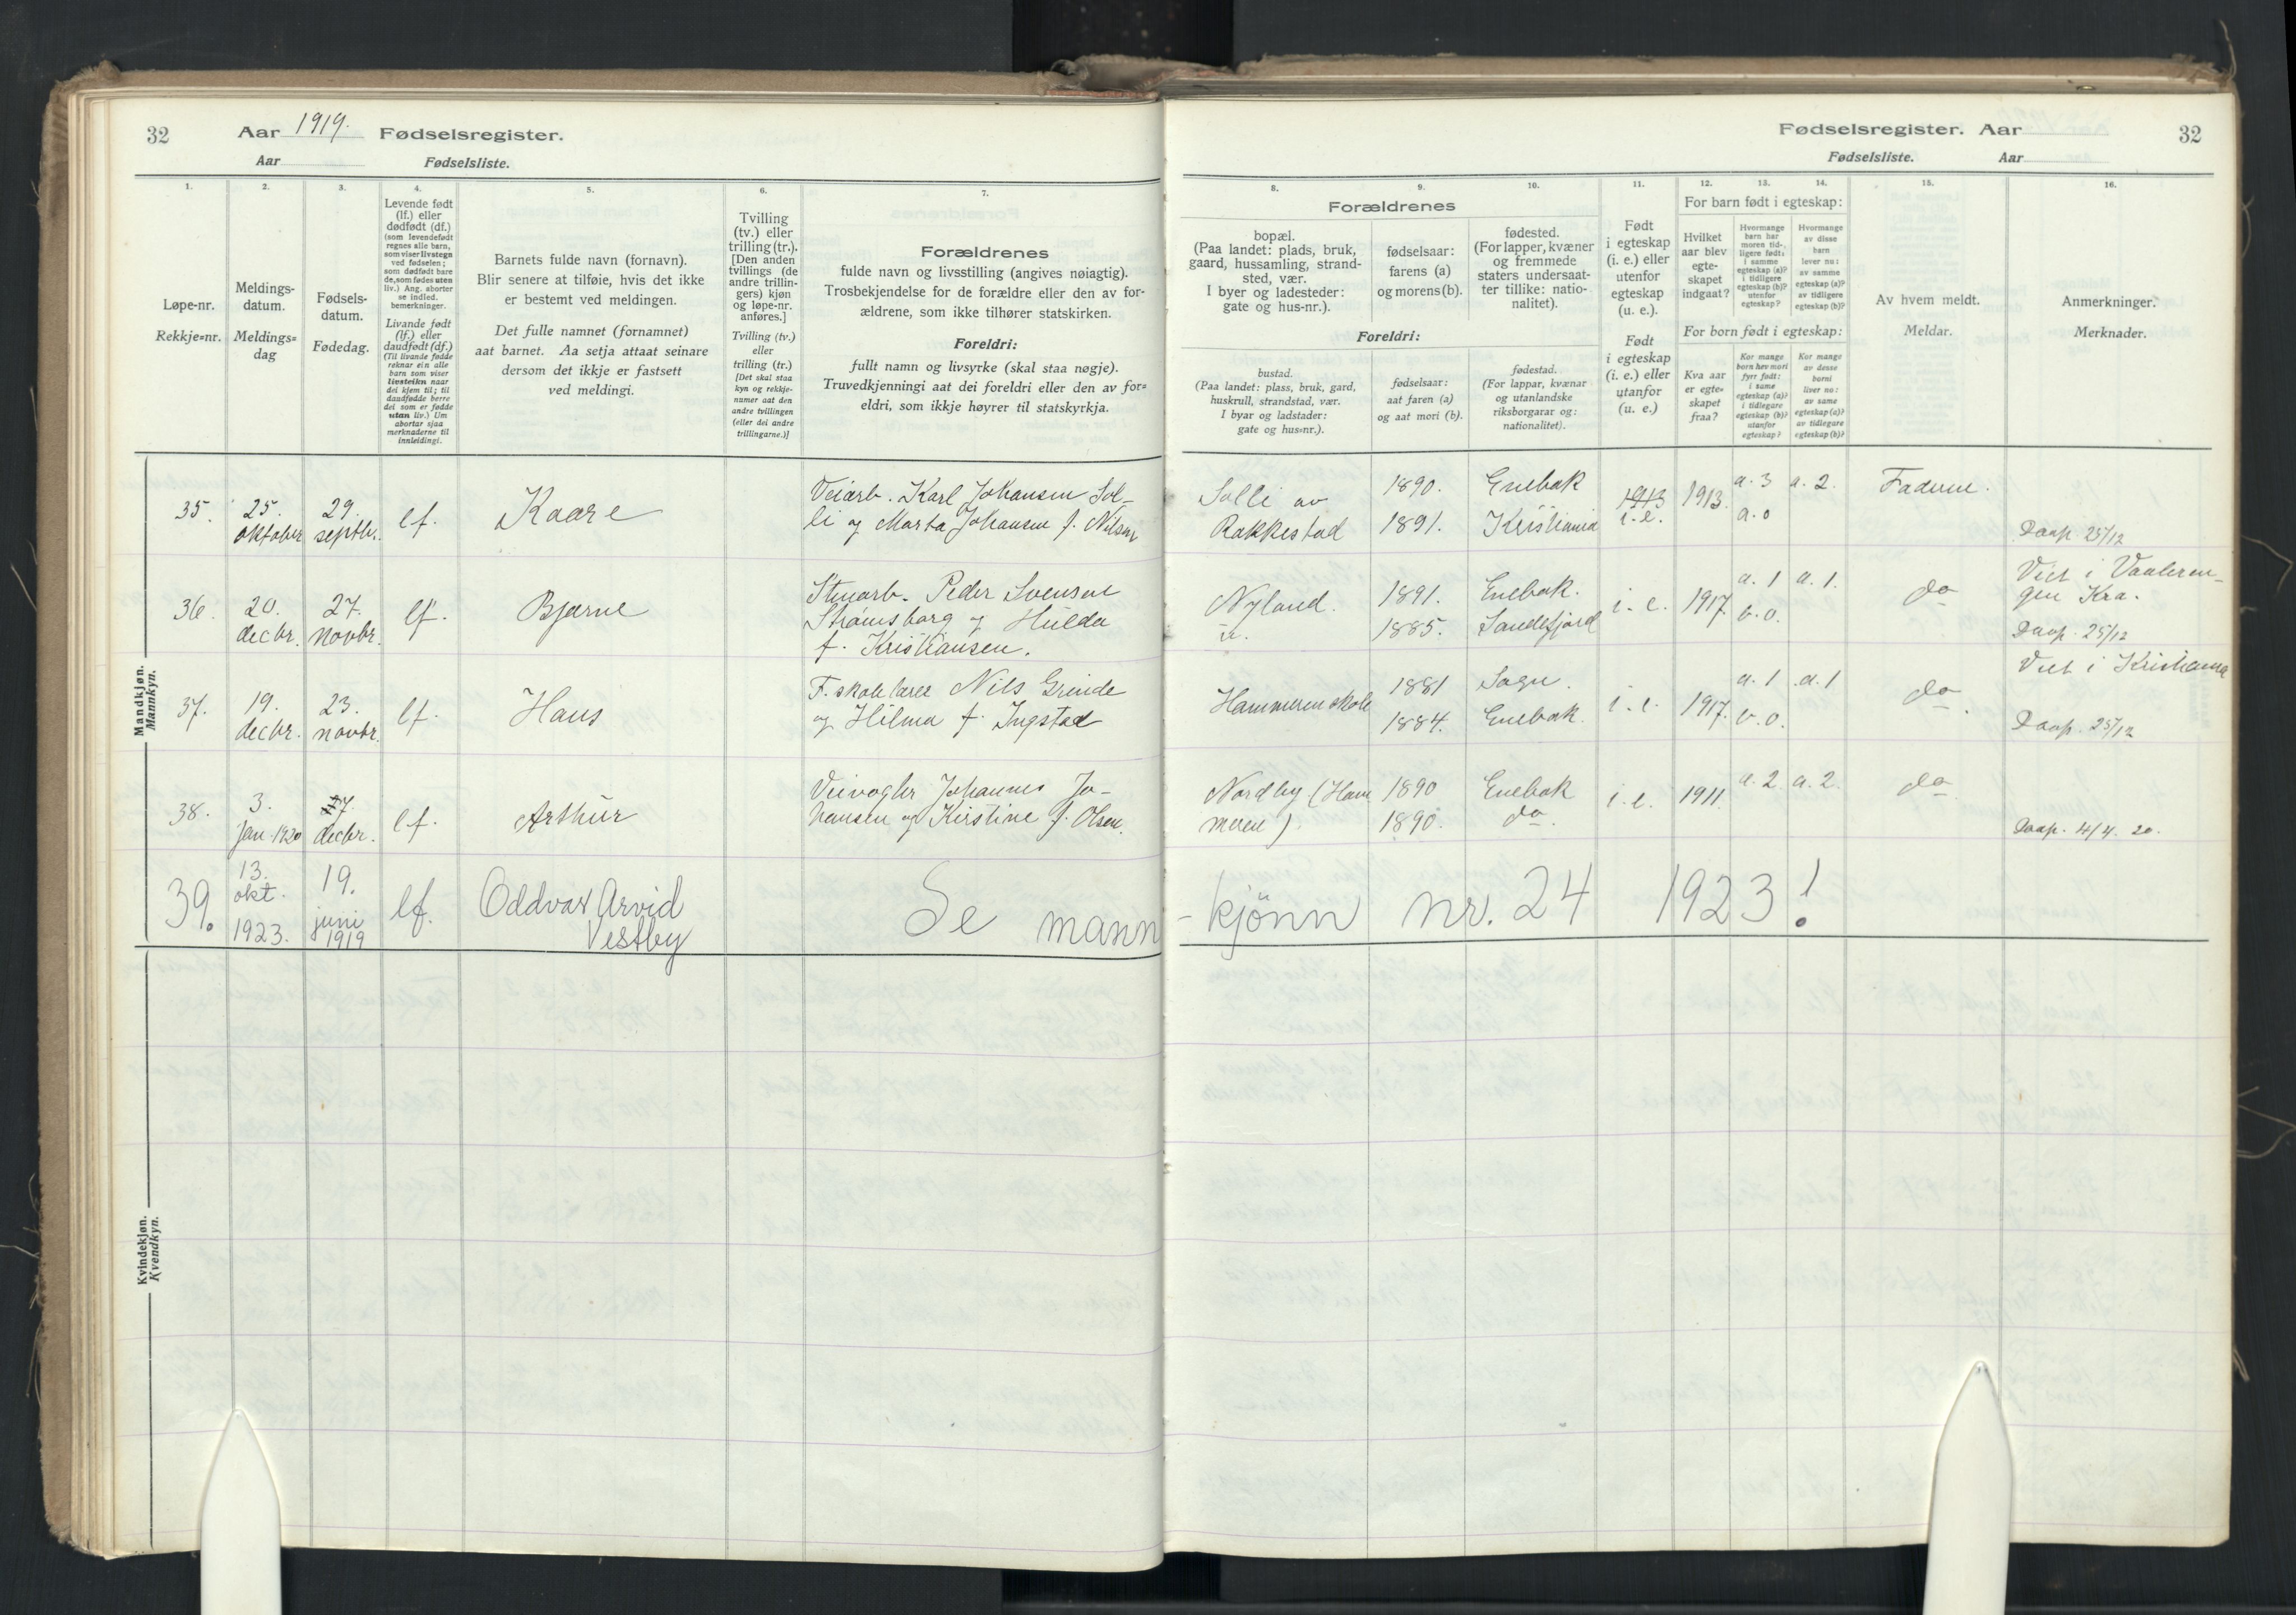 32 Aar 1919. Fødselsregister.
Aar Fødselsliste.
1. 2. 3. 4. 5. 6. 7.
Løpe-nr.
Rekkje=nr.
Meldings-
datum.
Meldings=
dag
Fødsels-
datum.
Fødedag.
Levende født
(lf.) eller
dødfødt (df.)
(som levendefødt
regnes alle barn,
som viser livstegn
ved fødselen;
som dødfødt bare
de, som fødes uten
liv.) Ang. aborter
se indled.
bemerkninger.
Livande født
(lf.) eller
daudfødt (df.)
(Til livande fødde
reknar ein alle
barn som viser
livsteikn naar
dei kjem til; til
daudfødde berre
dei som er fødde
utan liv.) Um
abortar sjaa
merknaderne til
innleidingi.
Barnets fulde navn (fornavn).
Blir senere at tilføie, hvis det ikke
er bestemt ved meldingen.
Det fulle namnet (fornamnet)
aat barnet. Aa setja attaat seinare
dersom det ikkje er fastsett
ved meldingi.
Tvilling
(tv.) eller
trilling (tr.).
[Den anden
tvillings (de
andre trillin-
gers) kjøn
og løpe-nr.
anføres.]
Tvilling (tv.)
eller
trilling (tr.)
[Det skal staa
kyn og rekkje-
numer aat den
andre tvillingen
(eller dei andre
trillingarne.)]
Forældrenes
fulde navn og livsstilling (angives nøiagtig).
Trosbekjendelse for de forældre eller den av for-
ældrene, som ikke tilhører statskirken.
Foreldri:
fullt namn og livsyrke (skal staa nøgje).
Truvedkjenningi aat dei foreldri eller den av for=
eldri, som ikkje høyrer til statskyrkja.
Mandkjøn.
Mannkyn.
35. 25. oktober 29. septbr. lf. Kaare
Veiarb. Karl Johansen Sol-
li og Marta Johansen f. Nilsen
36. 20. decbr. 27. novbr. lf. Bjarne
Stenarb. Peder Svensen
Strømsborg og Hulda
f. Kristiansen.
37. 19. decbr. 23. novbr. lf. Hans
F. skolelærer Nils Grinde
og Hilma f. Ingstad
38. 3. jan. 1920 7. decbr. lf. Arthur
Veivogter Johannes Jo-
hansen og Kirstine f. Olsen.
39. 13. okt. 1923. 19. juni 1919 lf. Oddvar Arvid
Vestby
Se mann
Kvindekjøn.
Kvendkyn.
Fødselsregister. Aar 32
Fødselsliste. Aar
8. 9. 10. 11. 12. 13. 14. 15. 16.
Forældrenes
bopæl.
(Paa landet: plads, bruk,
gaard, hussamling, strand-
sted, vær.
I byer og ladesteder:
gate og hus-nr.).
fødselsaar:
farens (a)
og morens (b).
fødested.
(For lapper, kvæner
og fremmede
staters undersaat-
ter tillike: natio-
nalitet).
Foreldri:
bustad.
(Paa landet: plass, bruk, gard,
huskrull, strandstad, vær.
I byar og ladstader:
gate og hus=nr.).
fødselsaar:
aat faren (a)
og aat mori (b).
fødestad.
(For lappar, kvænar
og utanlandske
riksborgarar og:
nationalitet).
Født
i egteskap
(i. e.) eller
utenfor
egteskap
(u. e.).
Født
i egteskap
(i. e.) eller
utanfor
(u. e.)
For barn født i egteskap:
Hvilket
aar blev
egte-
skapet
indgaat?
Hvormange
barn har
moren tid-
ligere født:
i samme
egteskap (a)?
i tidligere
egteskap (b)?
utenfor
egteskap?
Hvormange
av disse
barn
lever nu:
av samme
egteskap (a)?
av tidligere
egteskap (b)?
For born født i egteskap:
Kva aar
er egte=
skapet
fraa?
Kor mange
born hev mori
fyrr født:
i same
egteskap (a)?
i tidlegare
egteskap (b)?
utanfor
egteskap?
Kor mange
av desse
borni
liver no:
av same
egteskap (a)?
av tidlegare
egteskap (b)?
Av hvem meldt.
Meldar.
Anmerkninger.
Merknader.
Solli av 1890. Enebak 1913 1913. a. 3 a. 2. Faderen.
Rakkestad 1891. Kristiania i. e. a. 0
Daap. 25/12
Nyland. 1891. Enebak. i. e. 1917. a. 1 a. 1. do
1885. Sandefjord b. 0.
Viet i Vaaleren-
gen Kra.
Daap. 25/12
Hammeren skole 1881 Sogn. i. e. 1917. a. 1 a. 1 do
1884. Enebak. b. 0.
Viet i Kristiania
Daap. 25/12
Nordby (Ham 1890 Enebak i. e. 1911. a. 2 a. 2. do
meren) 1890. do.
Daap. 4/4. 20.
-kjönn nr. 24 1923!